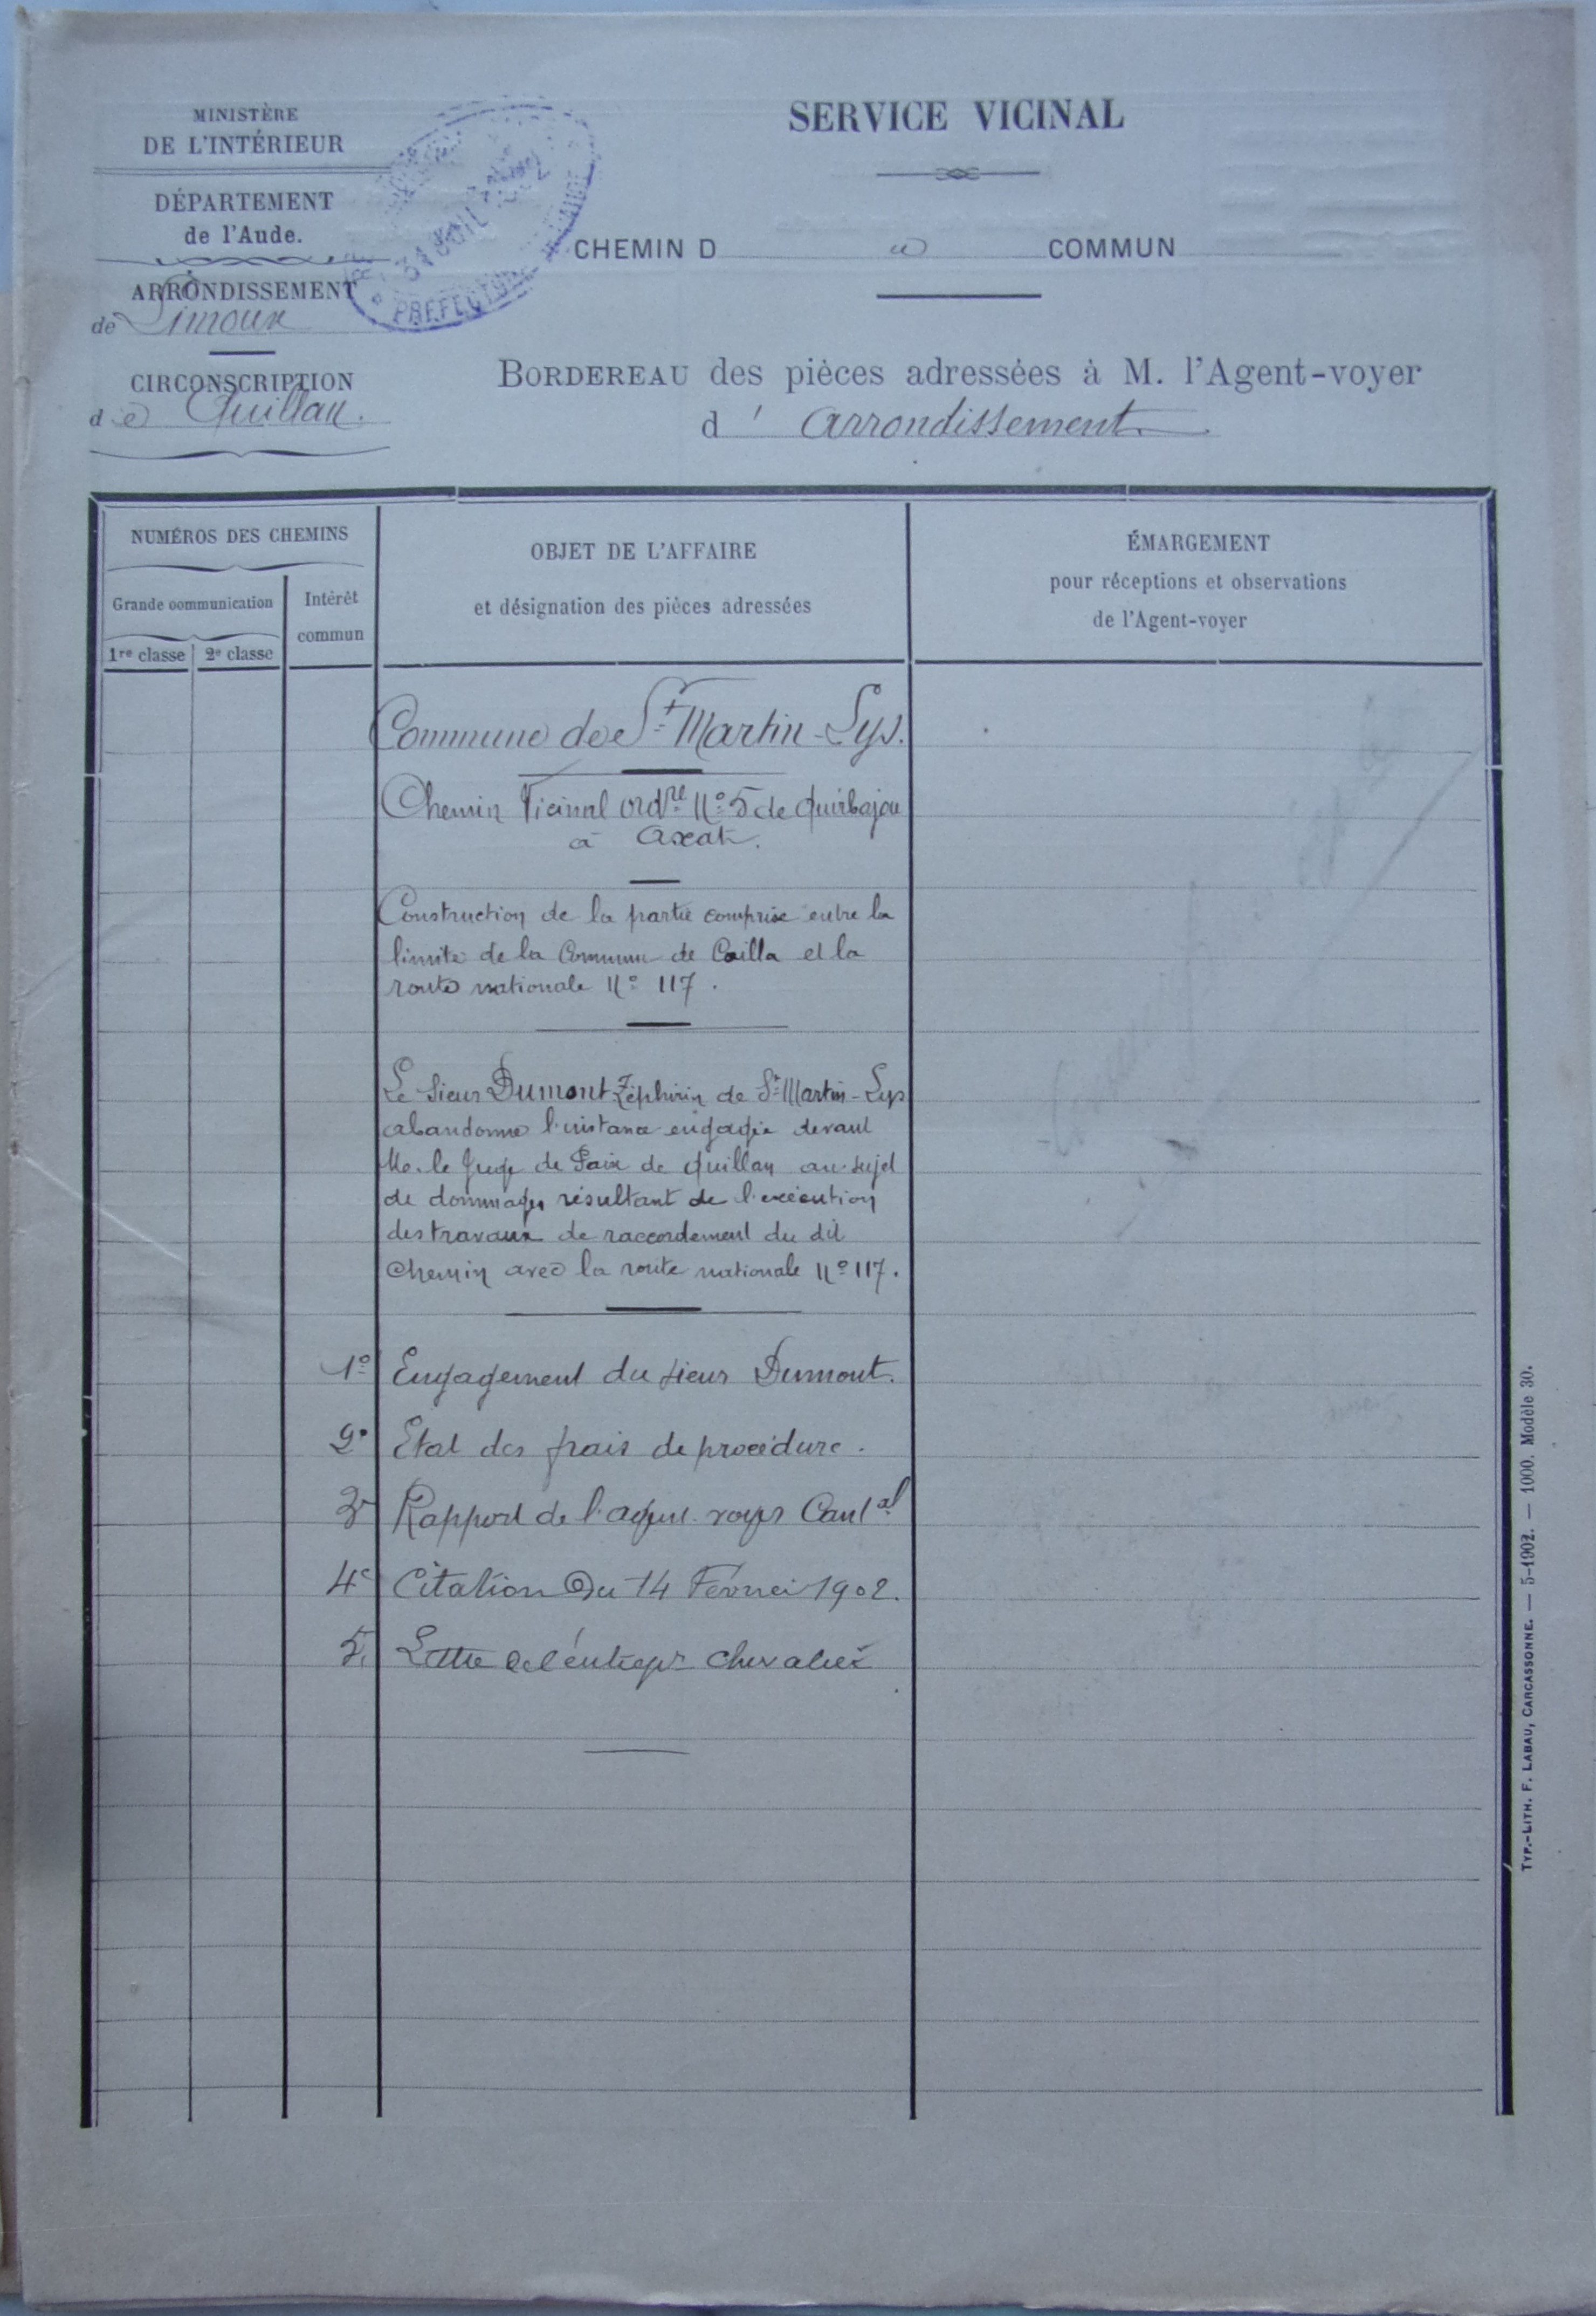 MINISTÈRE
DE L'INTÉRIEUR
DÉPARTEMENT
de l'Aude.
ARRONDISSEMENT
de Limoux
CIRCONSCRIPTION
de Quillan.
PREFECTURE
SERVICE VICINAL
CHEMIN D COMMUN
BORDEREAU des pièces adressées à M. l'Agent-voyer
d' arrondissement.
NUMÉROS DES CHEMINS
Grande communication
1re classe
2e classe
Intérêt
commun
OBJET DE L'AFFAIRE
et désignation des pièces adressées
ÉMARGEMENT
pour réceptions et observations
de l'Agent-voyer
Commune de St Martin-Lys.
Chemin Vicinal ordre No 5 de Quirbajou
à Axat.
Construction de la partie comprise entre la
limite de la Commune de Cailla et la
route nationale No 117.
Le Sieur Dumont Zéphirin de St Martin-Lys
abandonne l'instance engagée devant
Mr le Juge de Paix de Quillan au sujet
de dommages résultant de l'exécution
des travaux de raccordement du dit
chemin avec la route nationale No 117.
1o Engagement du sieur Dumont.
2o Etat des frais de procédure.
3o Rapport de l'agent voyer Cantal
4o Citation du 14 Février 1902.
5. Lettre de l'entrepr Chevalier
TYP.-LITH. F. LABAU, CARCASSONNE. — 5-1902. — 1000. Modèle 30.